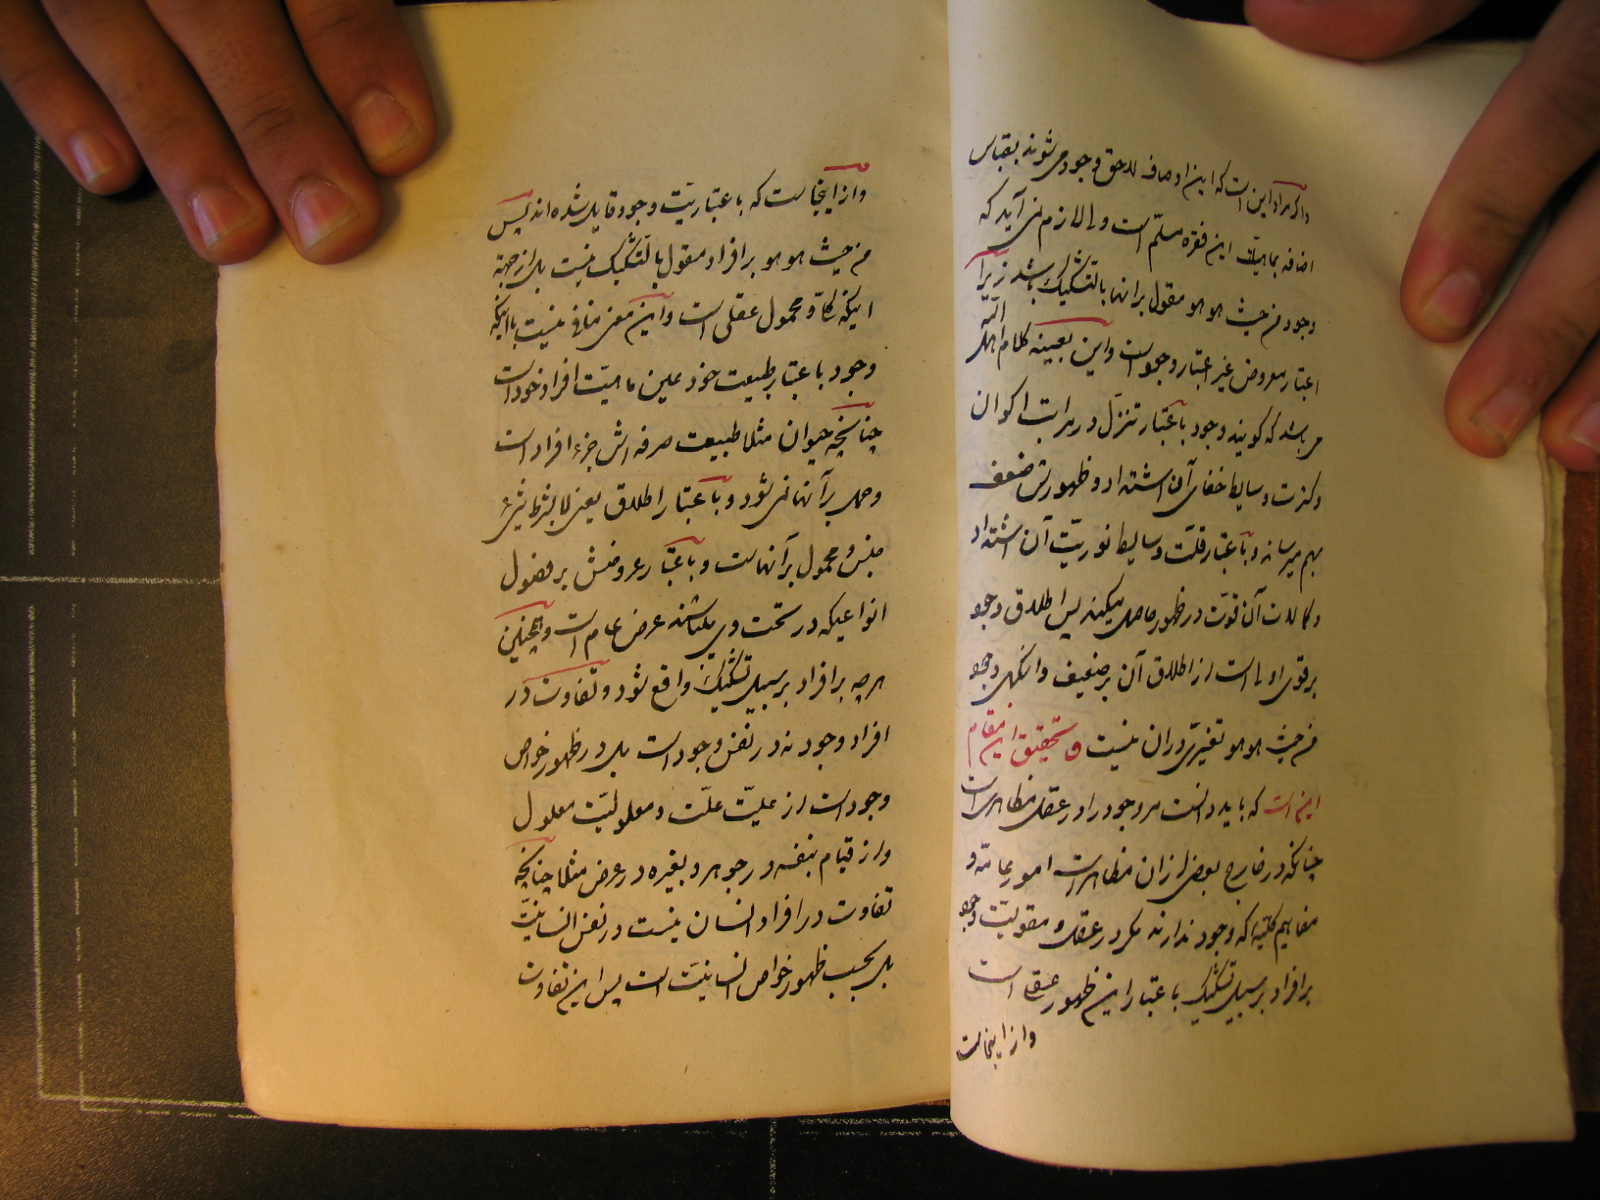 واگر مراد این است که این اوصاف لاحق وجود می شوند بقیاس
اضافه بماهیات این فقره مسلّم است ولی لازم نمی آید که
وجود من حیث هو هو مقول بر آنها بالتشکیک باشد زیرا
اعتبار معروض غیر اعتبار وجود است و این بعینه کلام اهل اللّه
می باشد که گویند وجود باعتبار تنزّل در مراتب اکوان
و کثرت وسایط خفای آن اشتداد و ظهورش ضعف
بهم میرساند و باعتبار قلّت وسایط نوریّت آن اشتداد
و کمالات آن قوّت در ظهور حاصل میکند پس اطلاق وجود
بر قوی اولی است از اطلاق آن بر ضعیف والکل وجود
من حیث هو هو تغیّری در آن نیست و تحقیق این مقام
این است که باید دانست مر وجود را در عقل مظاهری است
چنانکه در خارج بعضی از آن مظاهر است امور عامّه و
مفاهیم کلیّه که وجود ندارند مگر در عقل و مقولیّت وجود
بر افراد بر سبیل تشکیک باعتبار این ظهور عقلی است
و از اینجاست
و از اینجاست که باعتباریّت وجود قایل شده اند پس
من حیث هو هو بر افراد مقول بالتشکیک نیست بل از جهة
اینکه کلّی و محمول عقلی است و این معنی منافی نیست با اینکه
وجود باعتبار طبیعت خود عین ماهیّت افراد خود است
چنانچه حیوان مثلا طبیعت صرفه اش جزء افراد است
و حمل بر آنها نمی شود و باعتبار اطلاق یعنی لا بشرط شیء
جنس و محمول بر آنهاست و باعتبار عروضش بر فصول
انواعیکه در تحت وی میباشند عرض عام است و همچنین
هر چه بر افراد بر سبیل تشکیک واقع شود و تفاوت در
افراد وجود نه در نفس وجود است بل در ظهور خواص
وجود است از علیّت علّت و معلولیّت معلول
و از قیام بنفسه در جوهر و بغیره در عرض مثلا چنانچه
تفاوت در افراد انسان نیست در نفس انسانیّت
بل بحسب ظهور خواص انسانیّت است پس این تفاوت